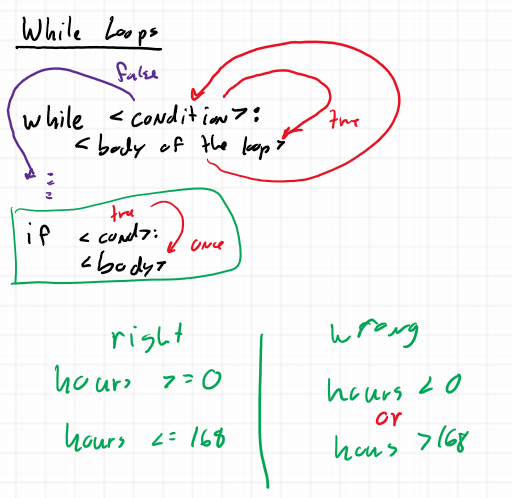 While Loops
false
while <condition>:
true
<body of the loop>
true
if <cond>:
once
<body>
right
hours >=0
hours <= 168
wrong
hours <0
or
hours >168